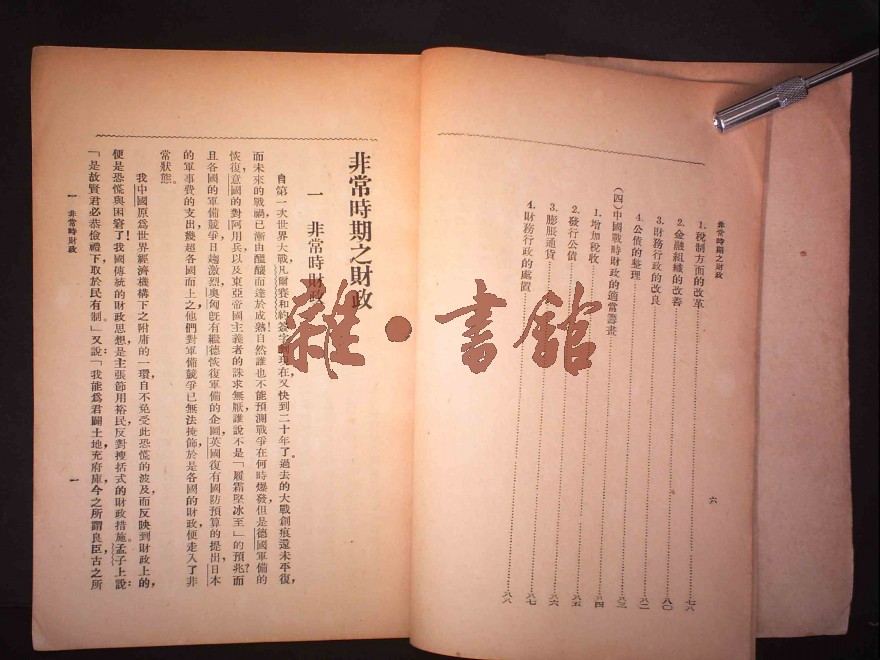 非常時期之財政
1. 稅制方面的改革 七八
2. 金融組織的改善 八〇
3. 財務行政的改良
4. 公債的整理 八二
(四) 中國戰時財政的適當籌畫 八三
1. 增加稅收 八四
2. 發行公債 八五
3. 膨脹通貨 八六
4. 財務行政的處置 八七
六
非常時期之財政
一 非常時財政
自第一次世界大戰,凡爾賽和約簽字到現在又快到二十年了。過去的大戰創痕還未平復,
而未來的戰禍已漸由醞釀而達於成熟!自然誰也不能預測戰爭在何時爆發,但是德國軍備的
恢復,意國的對阿用兵,以及東亞帝國主義者的誅求無厭,誰說不是「履霜堅冰至」的預兆?而
且各國的軍備競爭日趨激烈,奧匈既有繼德恢復軍備的企圖,英國復有國防預算的提出,日本
的軍事費的支出,幾超各國而上之,他們對軍備競爭已無法掩飾,於是各國的財政,便走入了非
常狀態。
我中國原為世界經濟機構下之附庸的一環,自不免受此恐慌的波及,而反映到財政上的,
便是恐慌與困窘了!我國傳統的財政思想,是主張節用裕民,反對搜括式的財政措施。孟子上說:
「是故賢君必恭儉禮下,取於民有制。」又說:「我能為君闢土地,充府庫,今之所謂良臣,古之所
一 非常時財政
一
雜·書館